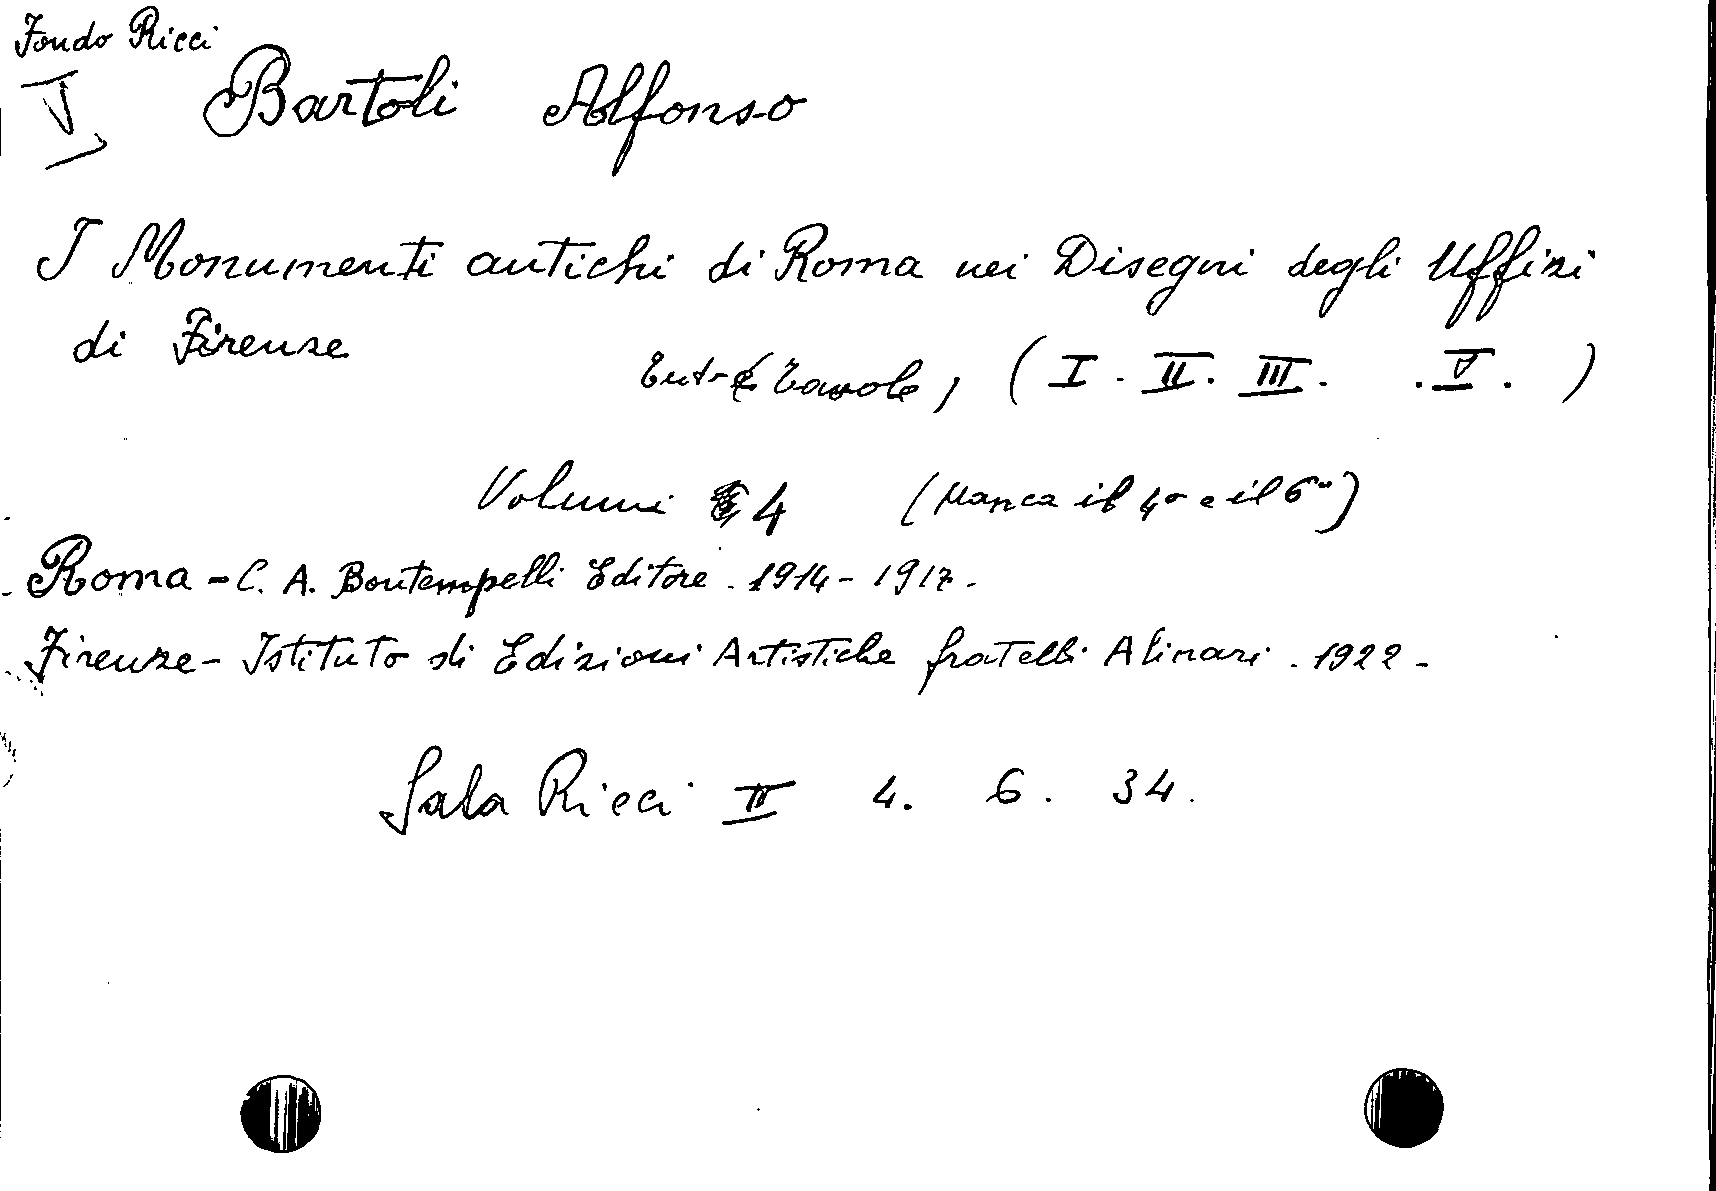 Fondo Ricci
V Bartoli Alfonso
I Monumenti antichi di Roma nei Disegni degli Uffizi
di Firenze
Tavole, (I. II. III. .V. )
Volumi 4 (Manca il 4º e il 6º)
Roma - C. A. Bontempelli Editore. 1914 - 1917.
Firenze - Istituto di Edizioni Artistiche fratelli Alinari. 1922 -
Sala Ricci II 4. 6. 34.